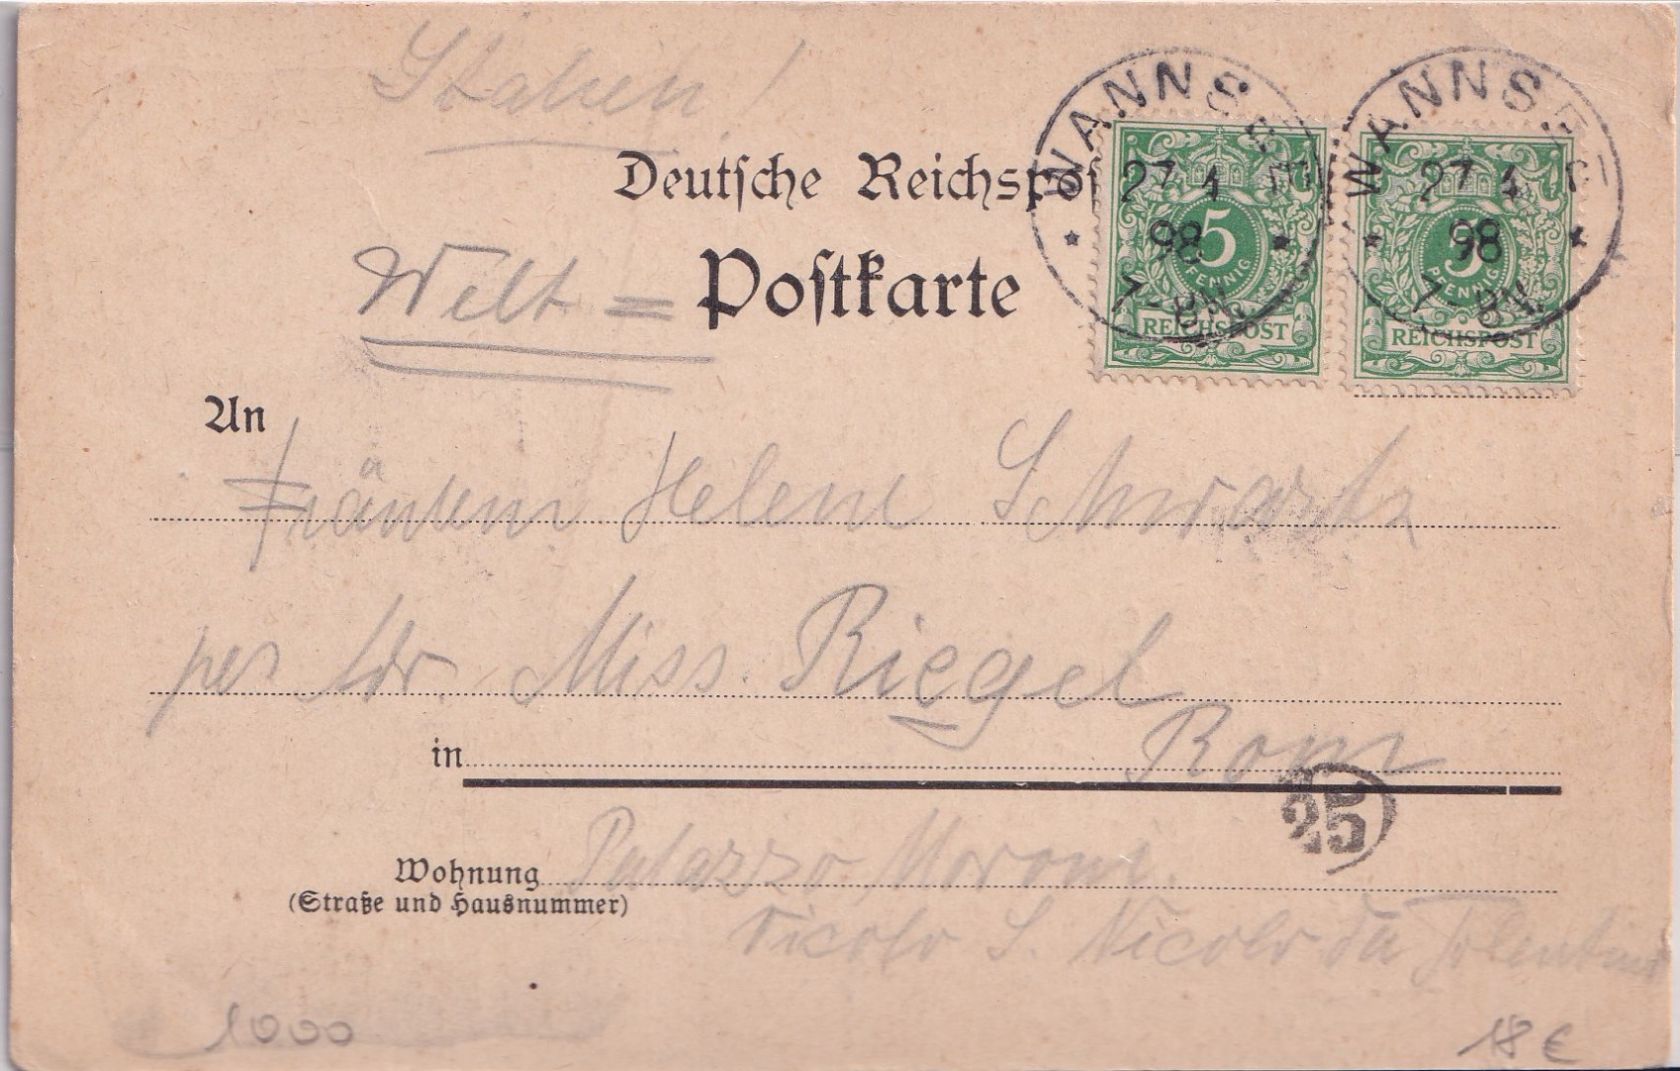 Italien!
Deutsche Reichspost
Welt = Postkarte
WANNSEE
27 1
98
7-8N.
5
PFENNIG
REICHSPOST
WANNSEE
27 1
98
7-8N.
5
PFENNIG
REICHSPOST
An
Fräulein Helene Schwartz
per Adr. Miss. Riegel
in Rom
25
Wohnung Palazzo Moroni.
(Straße und Hausnummer)
Vicolo S. Nicolo da Tolentino
1000
18 €